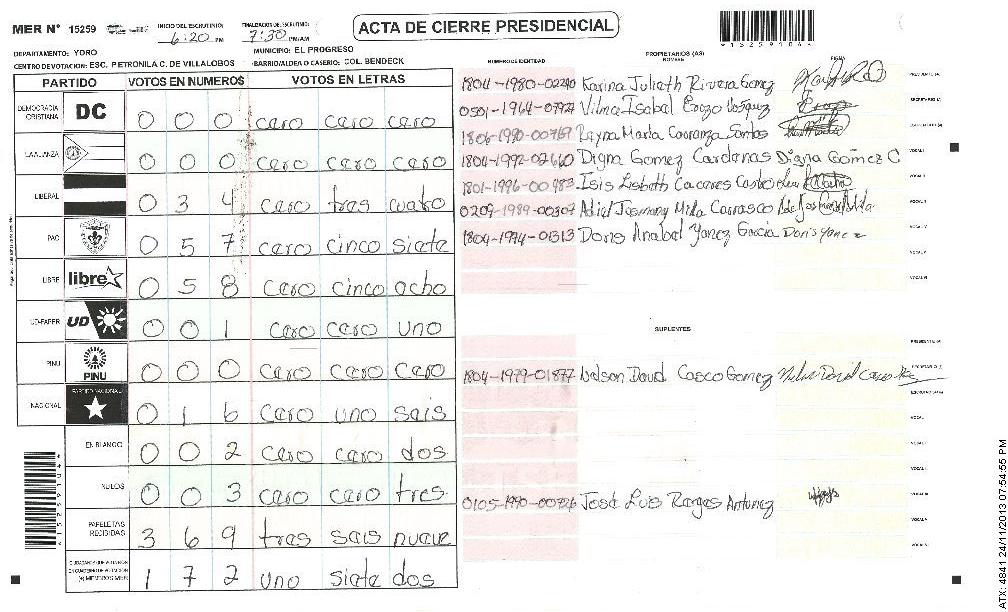 MER Nº 15259
INICIO DEL ESCRUTINIO: 6:20 PM
FINALIZACION DEL ESCRUTINIO: 7:30 PM/AM
ACTA DE CIERRE PRESIDENCIAL
DEPARTAMENTO: YORO
MUNICIPIO: EL PROGRESO
CENTRO DE VOTACION: ESC. PETRONILA C. DE VILLALOBOS
BARRIO/ALDEA O CASERIO: COL. BENDECK
PARTIDO VOTOS EN NUMEROS VOTOS EN LETRAS
DEMOCRACIA CRISTIANA DC 0 0 0 cero cero cero
LA ALIANZA 0 0 0 cero cero cero
LIBERAL 0 3 4 cero tres cuatro
PAC 0 5 7 cero cinco siete
LIBRE libre 0 5 8 cero cinco ocho
UD-FAPER UD 0 0 1 cero cero uno
PINU PINU 0 0 0 cero cero cero
NACIONAL PARTIDO NACIONAL 0 1 6 cero uno seis
EN BLANCO 0 0 2 cero cero dos
NULOS 0 0 3 cero cero tres
PAPELETAS RECIBIDAS 3 6 9 tres seis nueve
1 7 2 uno siete dos
NUMERO DE IDENTIDAD
PROPIETARIOS (AS)
NOMBRE
FIRMA
1804-1980-02240 Karina Julieth Rivera Gomez
0501-1964-07927 Vilma Isabel Erazo Vasquez
1806-1990-00769 Reyna Marta Carranza Santos
1804-1992-02660 Digna Gomez Cardenas Digna Gómez C
1801-1996-00483 Isis Lisbeth Caceres Castro
0209-1989-00307 Adiel Josmany Milla Carrasco
1804-1974-01313 Doris Anabel Yanez Garcia Doris Yanez
SUPLENTES
1804-1979-01877 Nelson David Casco Gomez
0105-1990-00726 Jose Luis Rargas Antunez
9152591044
ATX: 4841 24/11/2013 07:54:55 PM